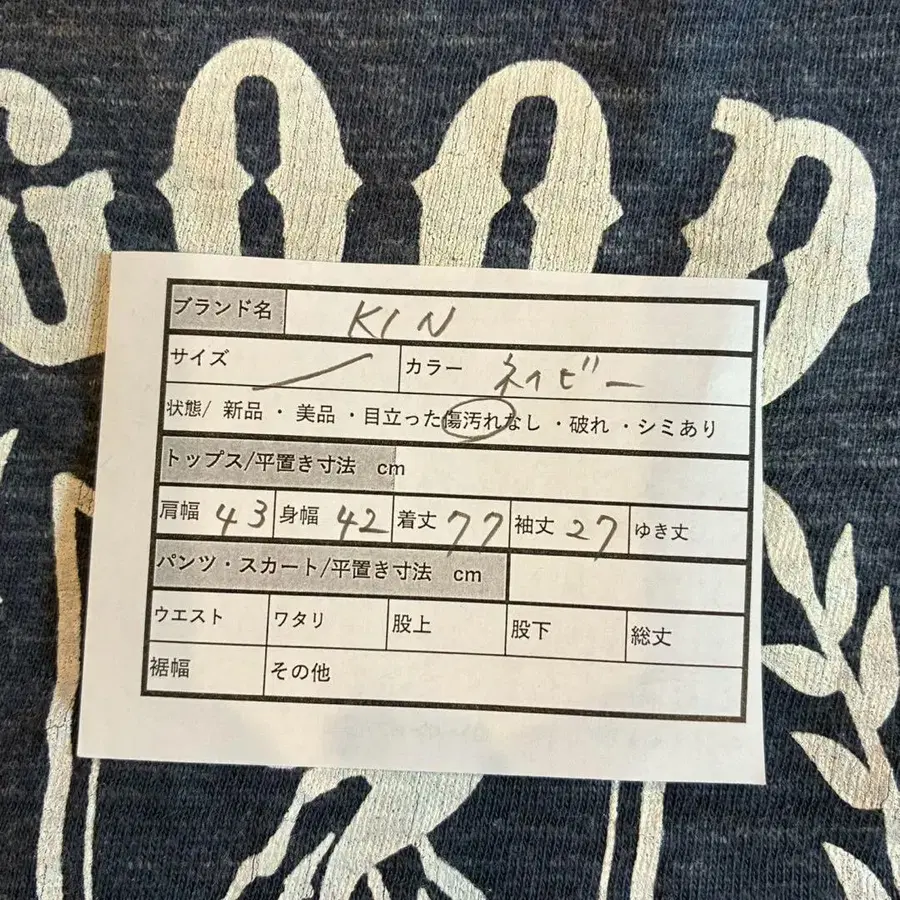 GOOD
ブランド名 KIN
サイズ カラー ネイビー
状態/ 新品 ・ 美品 ・目立った傷汚れなし ・破れ ・シミあり
トップス/平置き寸法 cm
肩幅 43 身幅 42 着丈 77 袖丈 27 ゆき丈
パンツ・スカート/平置き寸法 cm
ウエスト ワタリ 股上 股下 総丈
裾幅 その他